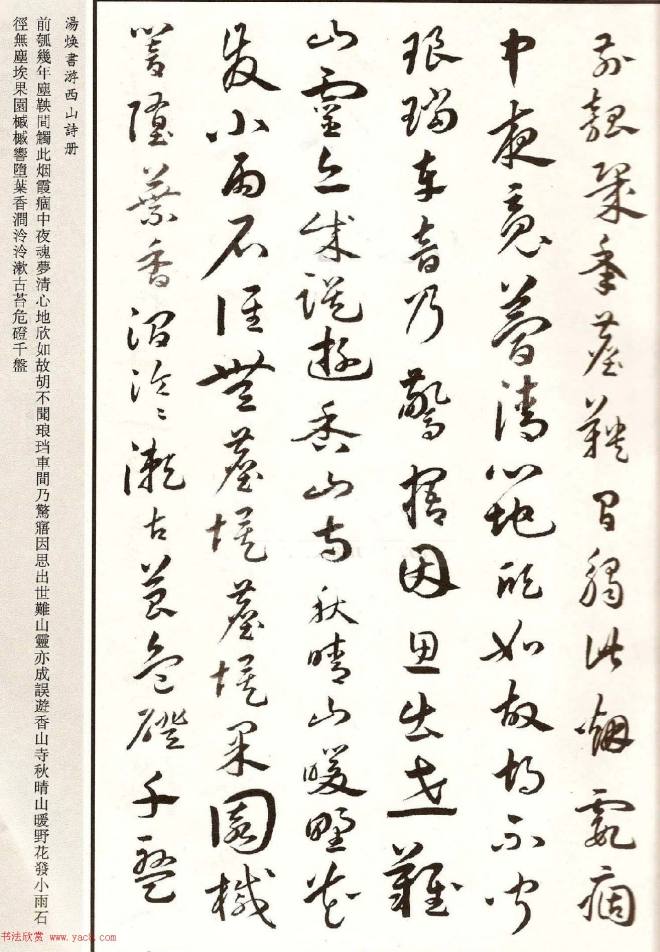 前瓠幾年塵鞅間觸此烟霞痼
中夜魂夢清心地欣如故胡不聞
琅璫車音乃驚寤因思出世難
山靈亦成誤遊香山寺秋晴山暖野花
發小雨石徑無塵埃塵埃果園槭
響墮葉香澗泠〻漱古苔危磴千盤
湯煥書游西山詩册
前瓠幾年塵鞅間觸此烟霞痼中夜魂夢清心地欣如故胡不聞琅珰車間乃驚寤因思出世難山靈亦成誤遊香山寺秋晴山暖野花發小雨石
徑無塵埃果園槭槭響墮葉香澗泠泠漱古苔危磴千盤
书法欣赏 www.yac8.com